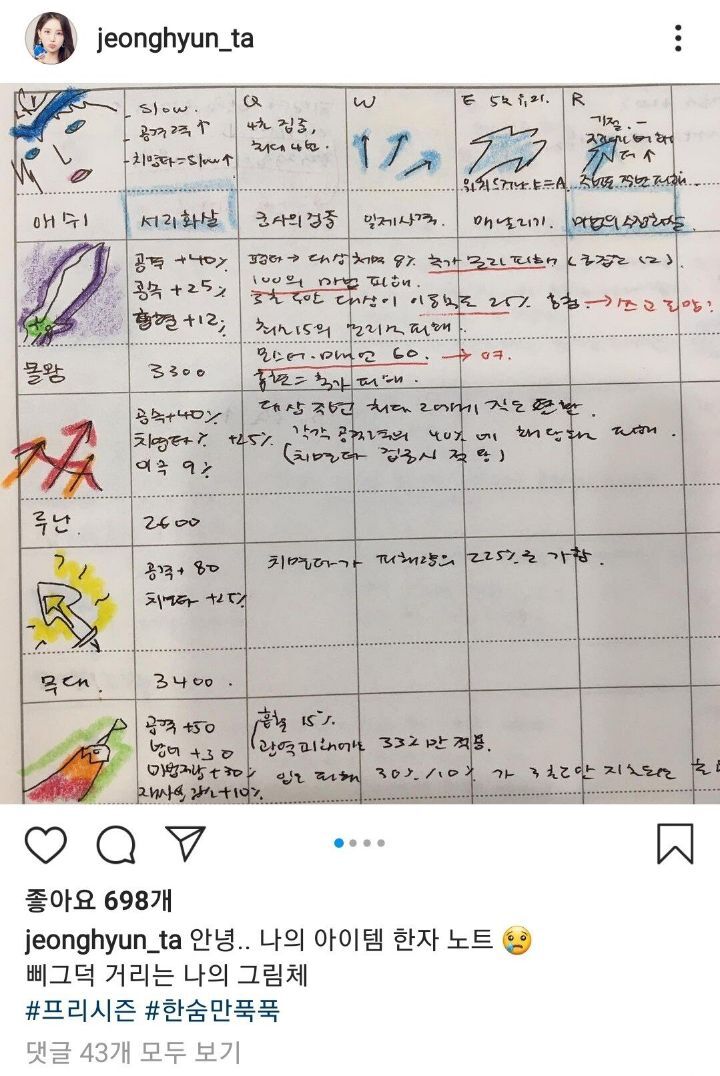 jeonghyun_ta
- Slow.
- 공격력 ↑
- 치명타 = Slow ↑
Q
4초 집중,
최대 4번.
W
E 5초 유지.
R
기절. -
애쉬
서리화살
궁사의 집중
일제사격.
매 날리기.
마법의 수정화살
공격 +40%
공속 +25%
흡혈 +12%
평타 → 대상 체력 8% 추가 물리피해 (중첩 12).
100의 마법 피해.
3초 동안 대상이 이동속도 25% 흡첩. → 쓰고 도망?
최소 15의 물리 피해.
몬스터·미니언 60. → 여.
흡혈 = 추가 피해.
몰왕
3300
공속 +40%
치명타% +25%
이속 9%
대상 주변 최대 2에게 직은 탄환.
각각 공격력의 40%에 해당되는 피해.
(치명타 적용시 적용)
루난.
2600
공격 + 80
치명타 +25%
치명타가 피해량의 225%를 가함.
무대.
3400.
공격 +50
방어 +30
마법저항 +30%
재사용 감소 +10%
흡혈 15%.
광역피해에는 33%만 적용.
입은 피해 30%/10% 가 3초간 지속되는
좋아요 698개
jeonghyun_ta 안녕.. 나의 아이템 한자 노트 😢
삐그덕 거리는 나의 그림체
#프리시즌 #한숨만푹푹
댓글 43개 모두 보기